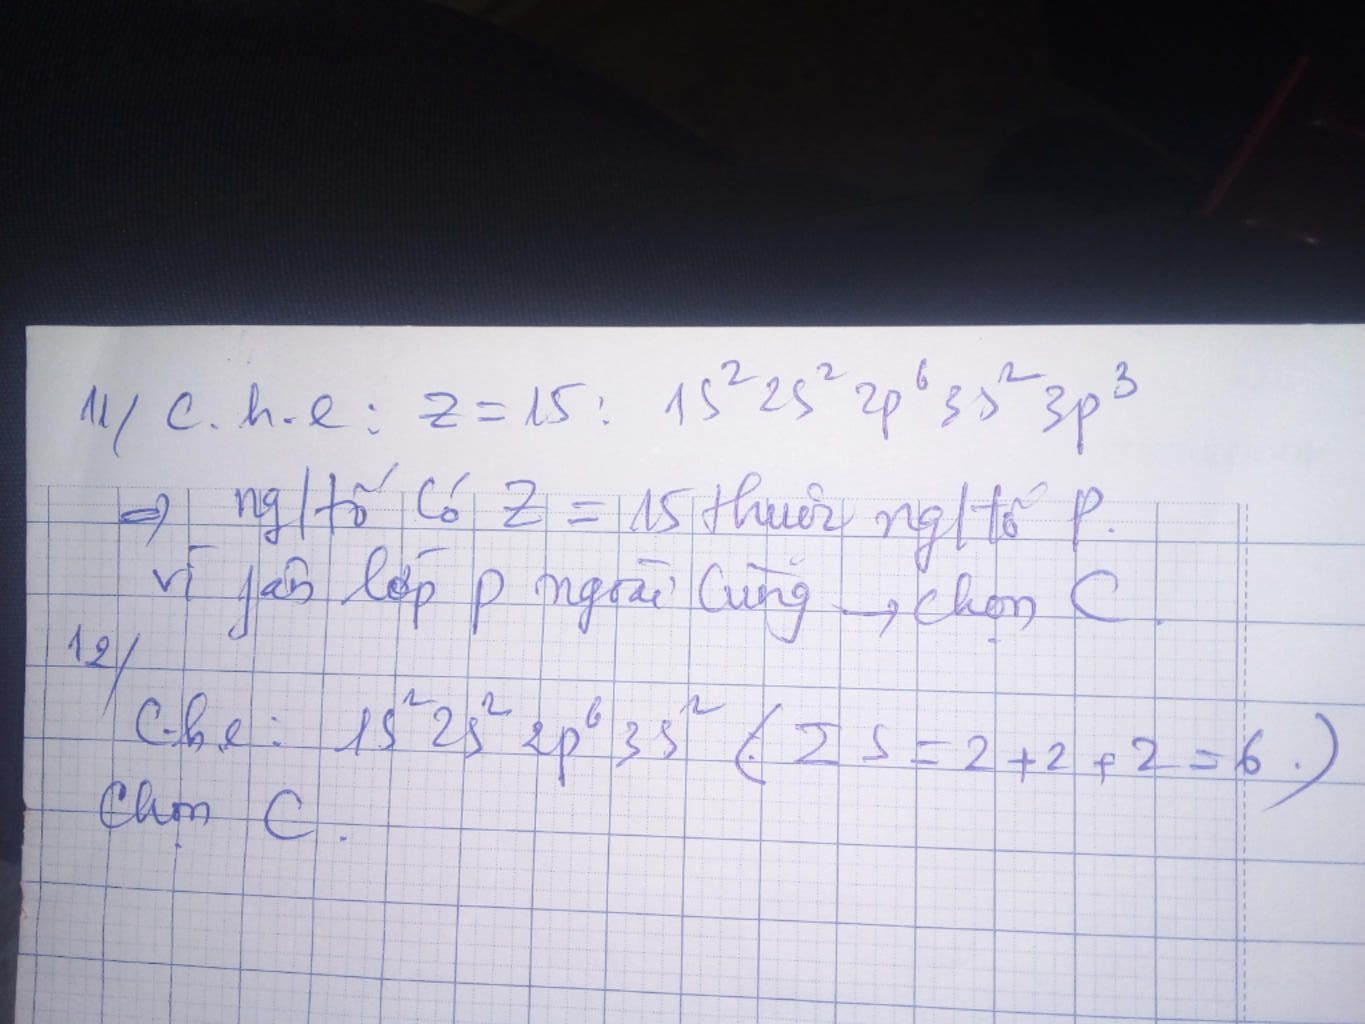 11/ C.h.e: Z = 15: 1s² 2s² 2p⁶ 3s² 3p³
⇒ ng/tố có Z = 15 thuộc ng/tố p.
vì lớp p ngoài cùng → chọn C.
12/
C.h.e: 1s² 2s² 2p⁶ 3s² (Σ s = 2 + 2 + 2 = 6.)
Chọn C.